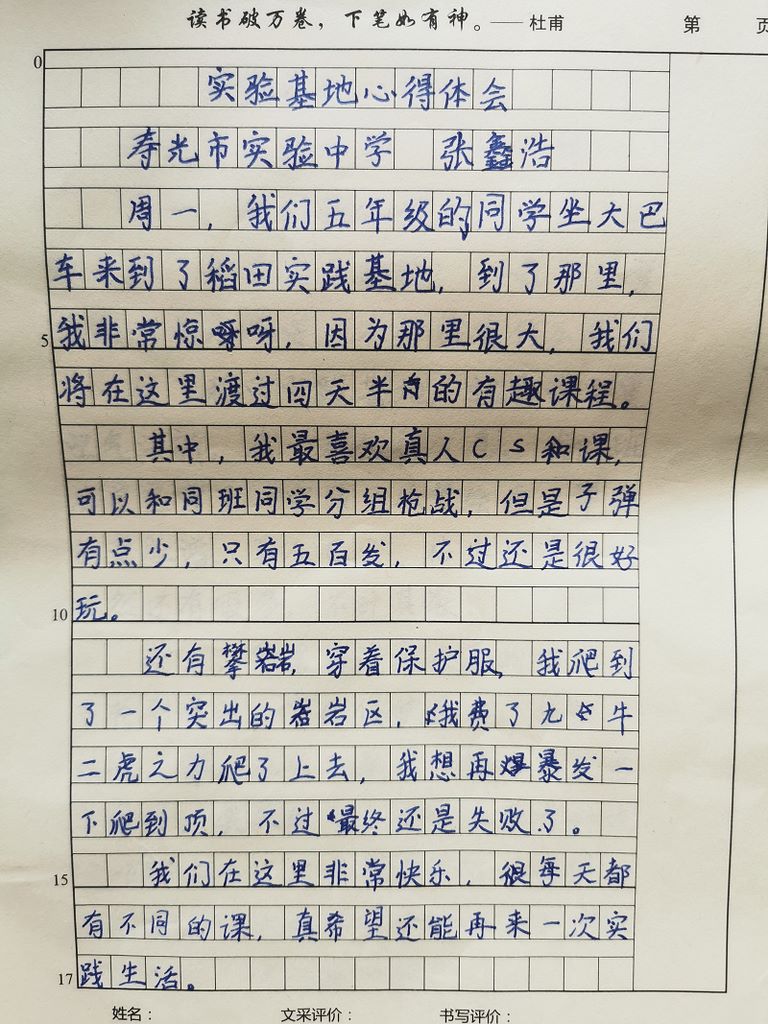 读书破万卷，下笔如有神。——杜甫 第 页
0
实验基地心得体会
寿光市实验中学 张鑫浩
周一，我们五年级的同学坐大巴
车来到了稻田实践基地，到了那里，
5 我非常惊呀，因为那里很大，我们
将在这里渡过四天半的有趣课程。
其中，我最喜欢真人CS和课，
可以和同班同学分组枪战，但是子弹
有点少，只有五百发，不过还是很好
10 玩。
还有攀岩，穿着保护服，我爬到
了一个突出的岩区，我费了九牛
二虎之力爬了上去，我想再暴发一
下爬到顶，不过最终还是失败了。
15 我们在这里非常快乐，每天都
有不同的课，真希望还能再来一次实
17 践生活。
姓名： 文采评价： 书写评价：